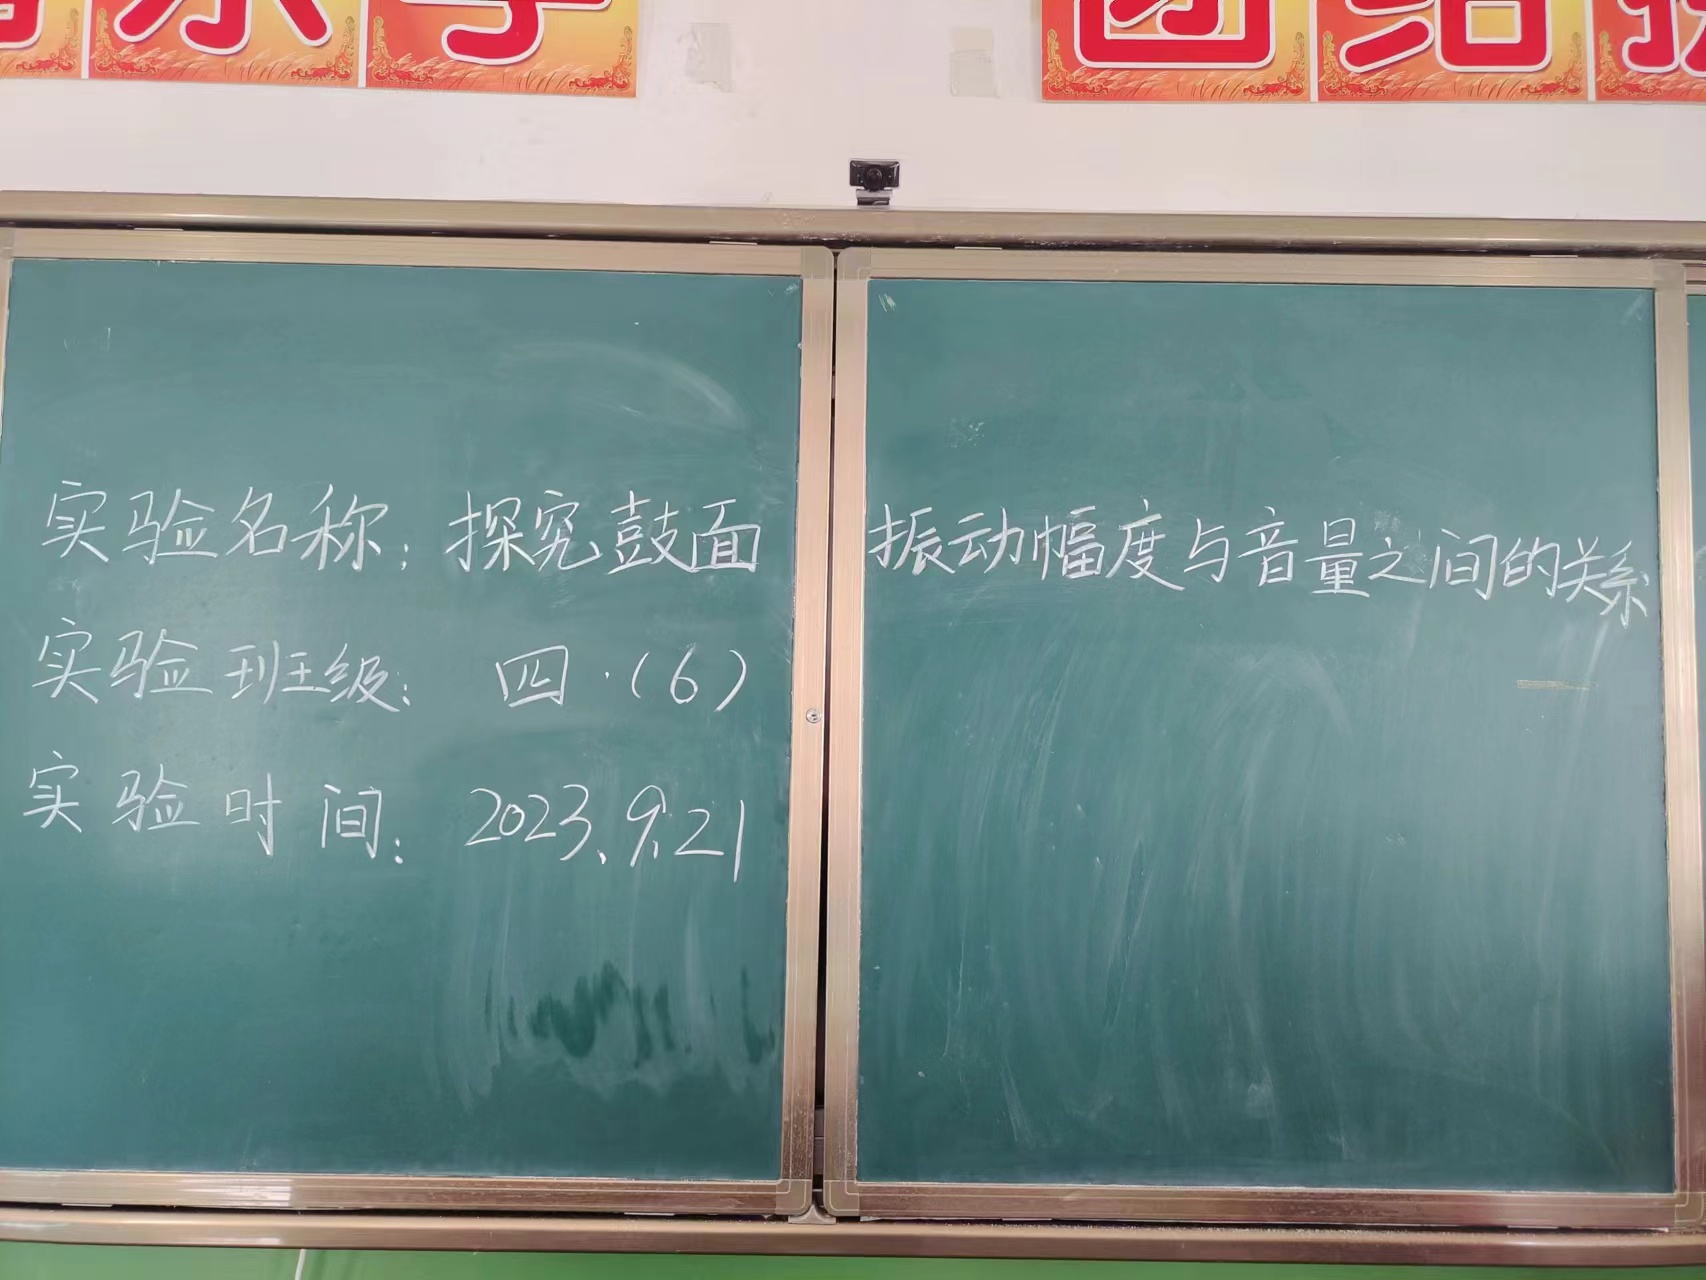 实验名称：探究鼓面振动幅度与音量之间的关系
实验班级：四·（6）
实验时间：2023.9.21